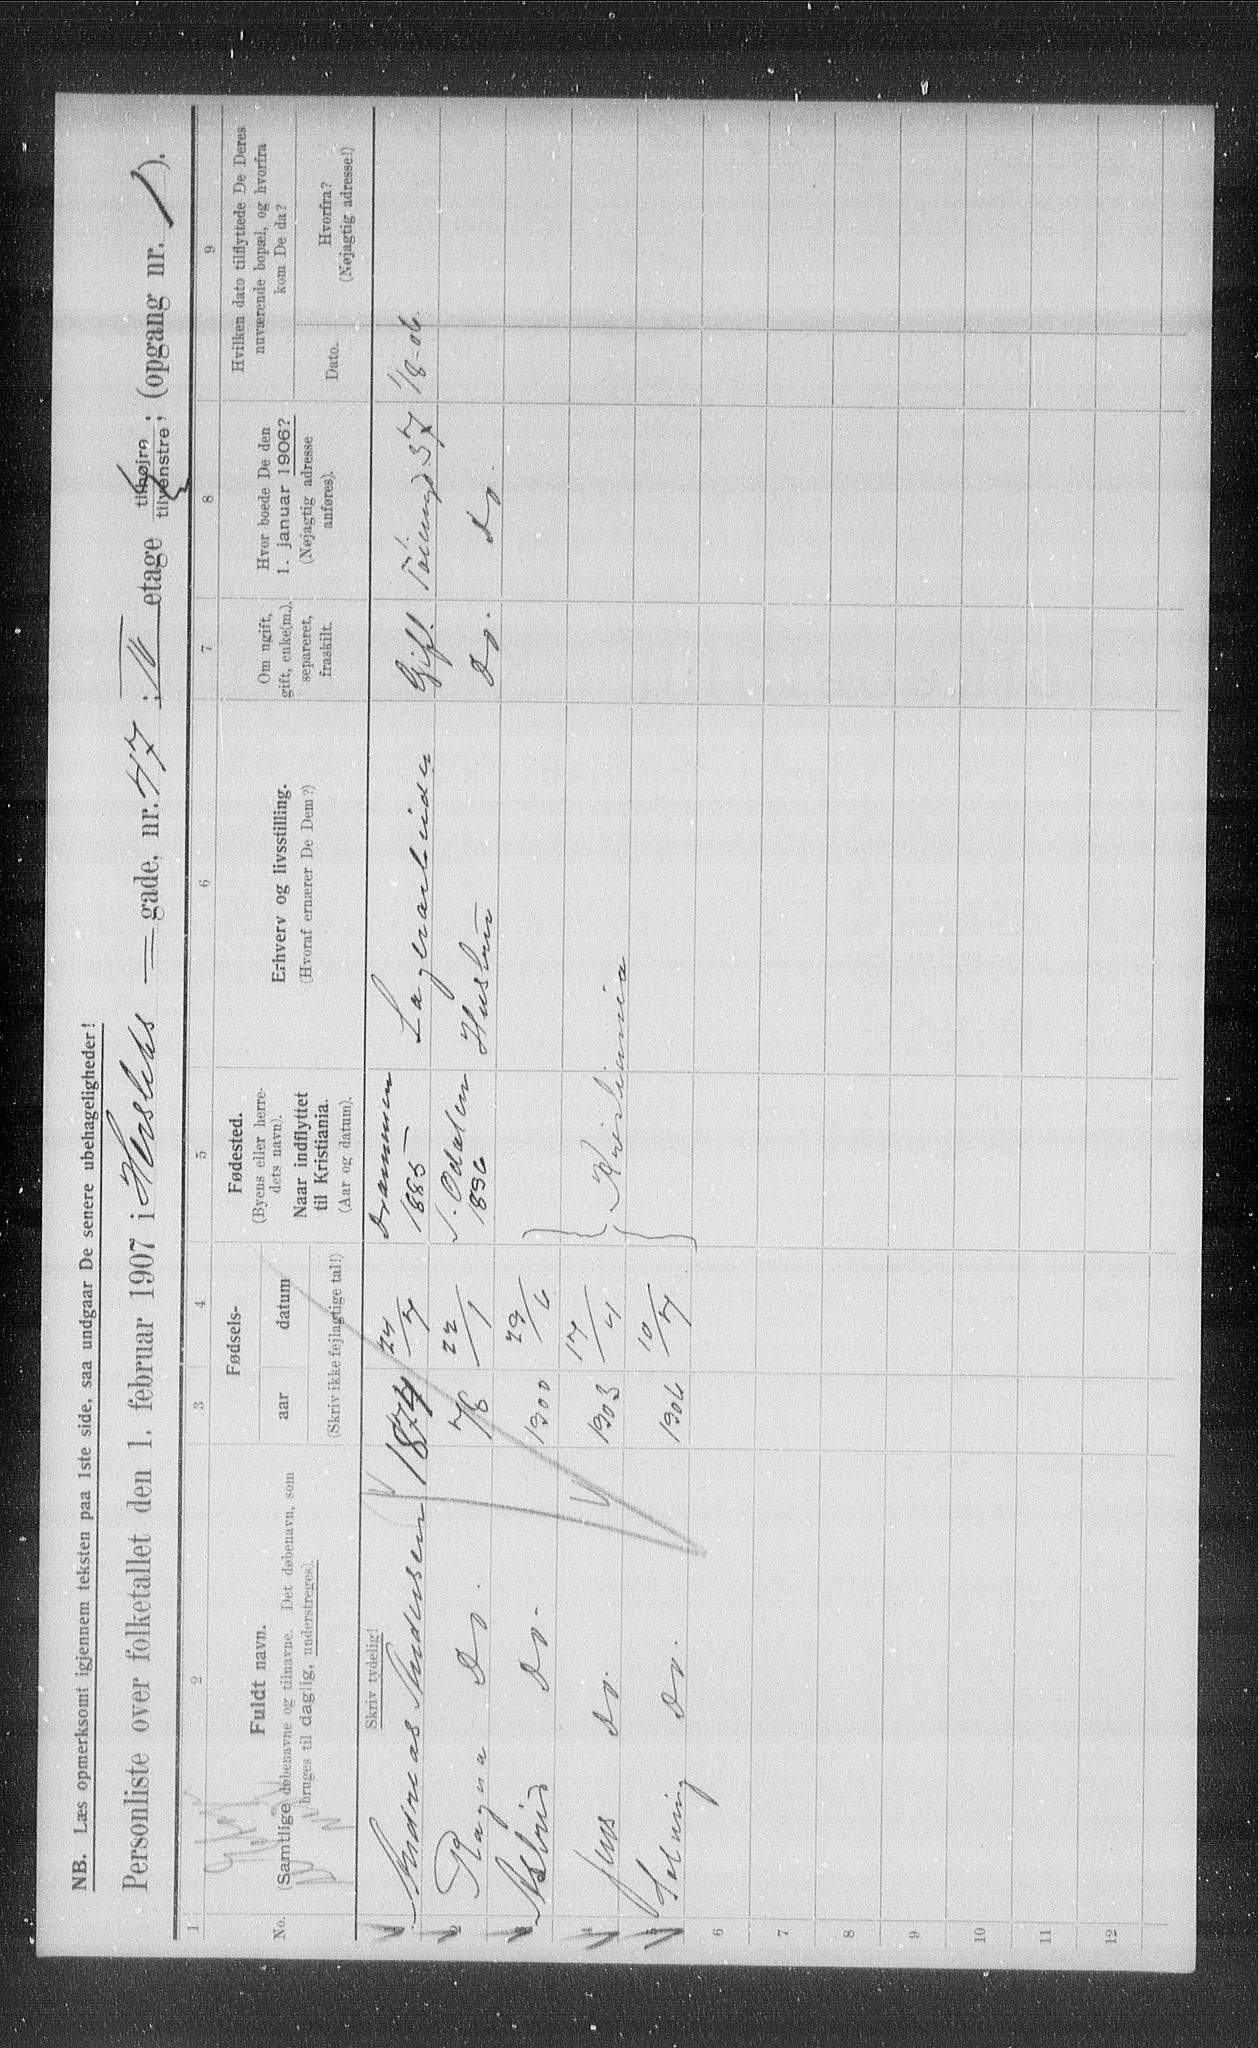 NB. Læs opmerksomt igjennem teksten paa 1ste side, saa undgaar De senere ubehageligheder!
Personliste over folketallet den 1. februar 1907 i Herslebs gade, nr. 47; IV etage tilhøjre tilvenstre; (opgang nr. 1).
1 2 3 4 5 6 7 8 9
No.
Fuldt navn.
(Samtlige døbenavne og tilnavne. Det døbenavn, som
bruges til daglig, understreges).
Fødsels-
aar datum
(Skriv ikke fejlagtige tal!)
Fødested.
(Byens eller herre-
dets navn).
Naar indflyttet
til Kristiania.
(Aar og datum).
Erhverv og livsstilling.
(Hvoraf ernærer De Dem?)
Om ugift,
gift, enke(m.),
separeret,
fraskilt.
Hvor boede De den
1. januar 1906?
(Nøjagtig adresse
anføres).
Hvilken dato tilflyttede De Deres
nuværende bopæl, og hvorfra
kom De da?
Dato.
Hvorfra?
(Nøjagtig adresse!)
Skriv tydelig!
1 Andreas Andersen 1874 24/7 Drammen 1885 Lagerarbeider Gift. 37 1/8-06.
2 Ragna Do. 78 22/1 S. Odalen 1896 Hustru Do. Do.
3 Astrid Do. 1900 29/6
4 Jens Do. 1903 17/4 Kristiania
5 Solveig Do. 1906 10/7
6
7
8
9
10
11
12